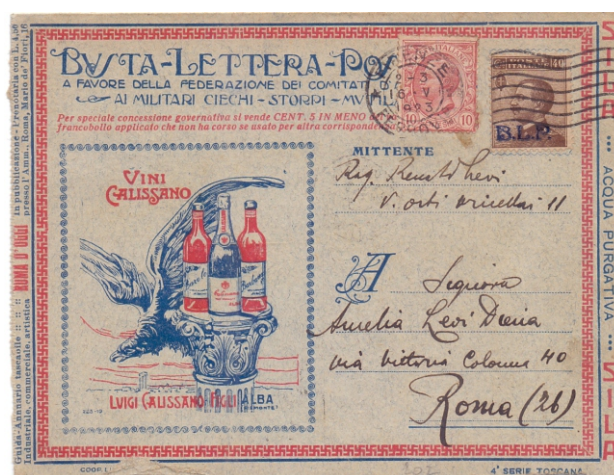 BVSTA-LETTERA-PO
A FAVORE DELLA FEDERAZIONE DEI COMITATI
AI MILITARI CIECHI - STORPI - MVTIL
Per speciale concessione governativa si vende CENT. 5 IN MENO
francobollo applicato che non ha corso se usato per altra corrisponde
10 10
B.L.P.
VINI
CALISSANO
LUIGI CALISSANO & FIGLI ALBA
PIEMONTE
MITTENTE
Rag. Renato Levi
V. orti oricellai 11
A
Signora
Amelia Levi
via Vittoria Colonna 40
Roma (26)
4ª SERIE TOSCANA
Guida-Annuario tascabile :: :: :: ROMA D'OGGI in pubblicazione - Prenotarla con L. 4,50
Industriale, commerciale, artistica presso l'Amm., Roma, Mario de' Fiori, 16
ACQUA PURGATIVA